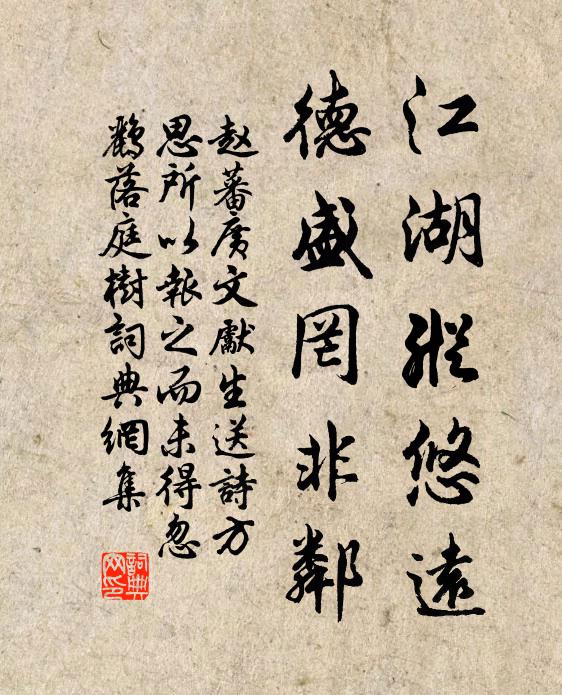 江湖縱悠遠
德盛罔非鄰
赵蕃廣文獻生送詩方
思所以報之而未得忽
鸛落庭樹詞典網集
詞典
网印